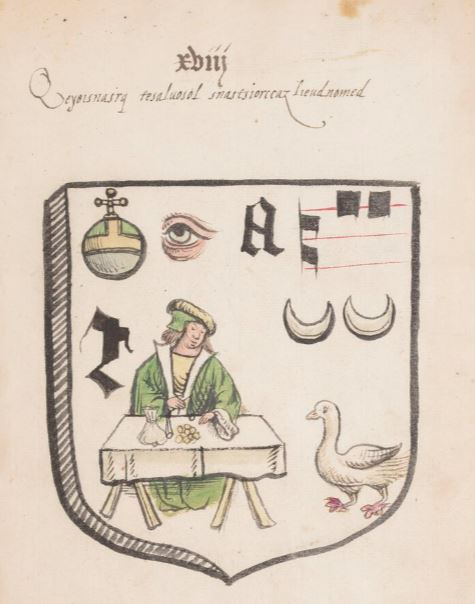 xviij
Qeyoisnasrq tesaluosol snastsiorccaz lieudnomed
A